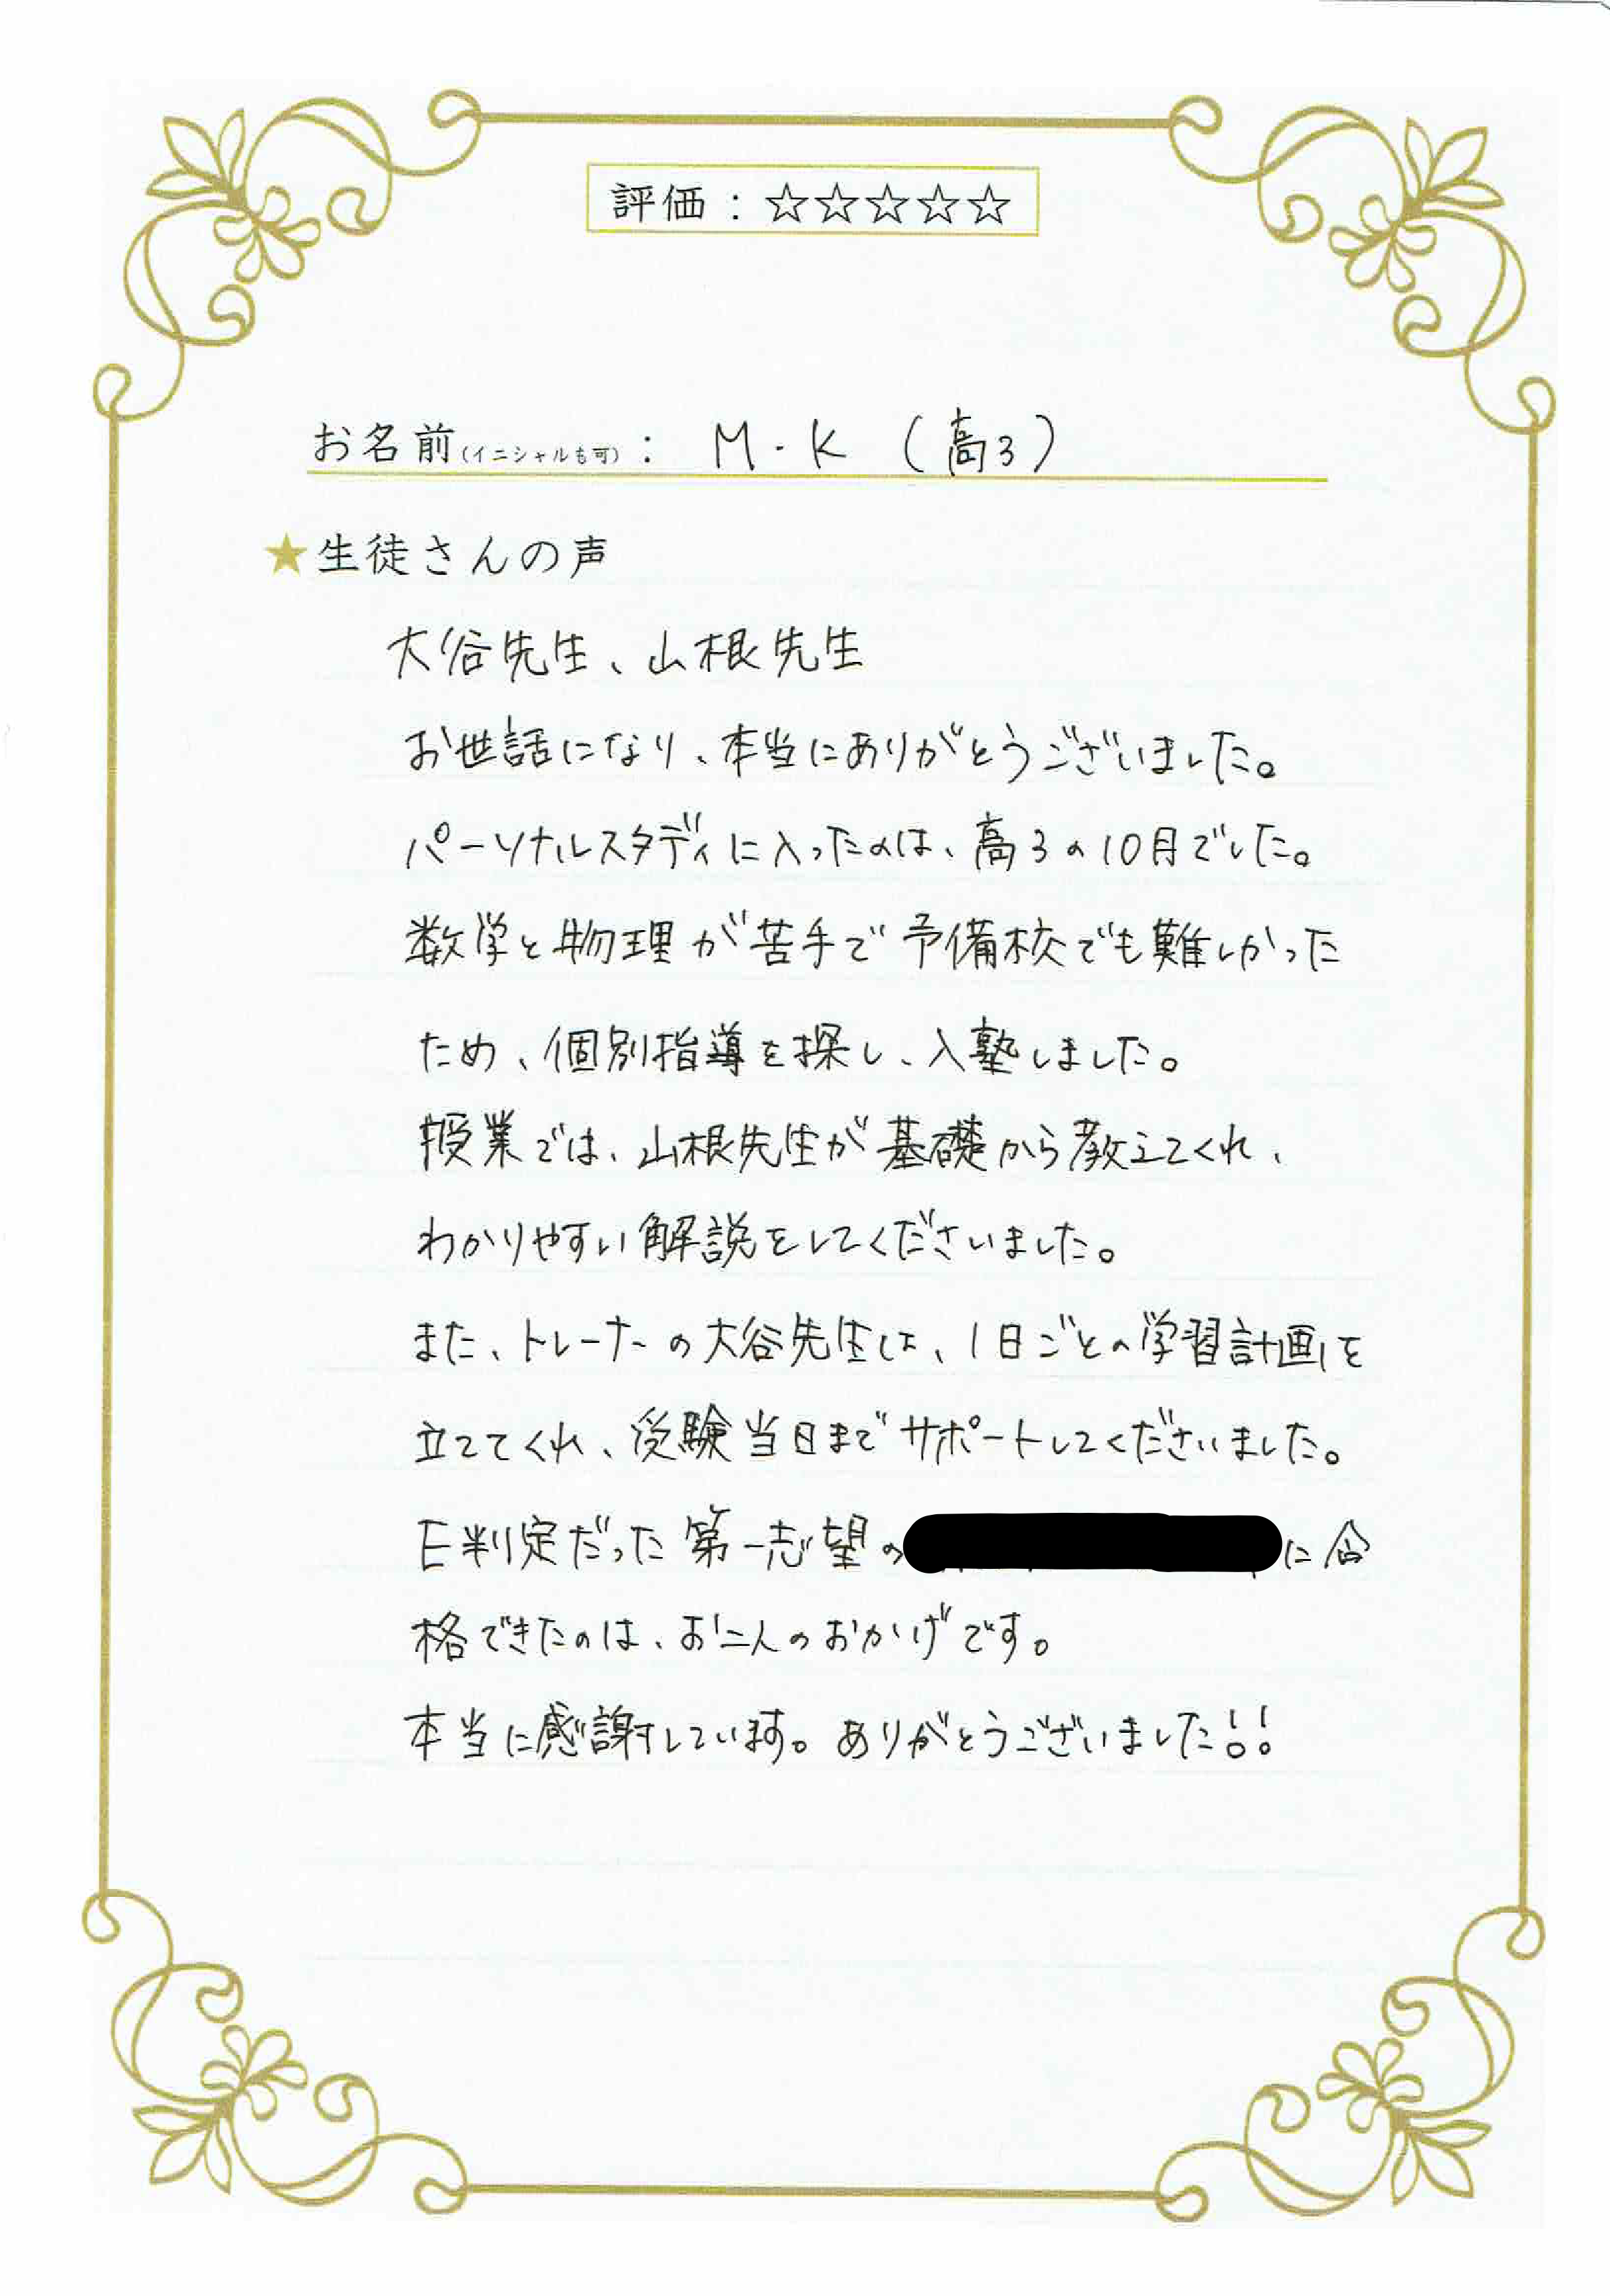 評価：☆☆☆☆☆
お名前(イニシャルも可)： M・K (高3)
★生徒さんの声
大谷先生、山根先生
お世話になり、本当にありがとうございました。
パーソナルスタディに入ったのは、高3の10月でした。
数学と物理が苦手で予備校でも難しかった
ため、個別指導を探し、入塾しました。
授業では、山根先生が基礎から教えてくれ、
わかりやすい解説をしてくださいました。
また、トレーナーの大谷先生は、1日ごとの学習計画を
立ててくれ、受験当日までサポートしてくださいました。
E判定だった第一志望の に合
格できたのは、お二人のおかげです。
本当に感謝しています。ありがとうございました!!